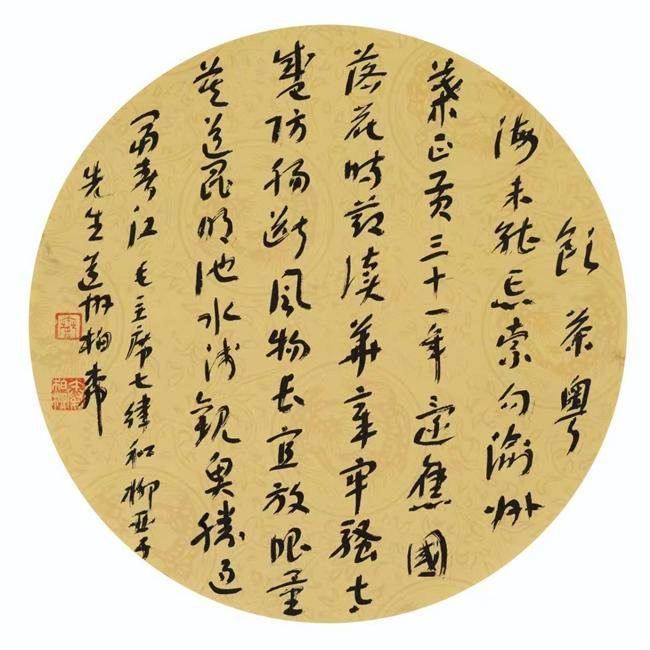 飲茶粵
海未能忘索句渝州
葉正黄三十一年還舊國
落花時節讀華章牢騷太
盛防腸斷風物長宜放眼量
莫道昆明池水淺觀魚勝過
富春江毛主席七律和柳亞子
先生